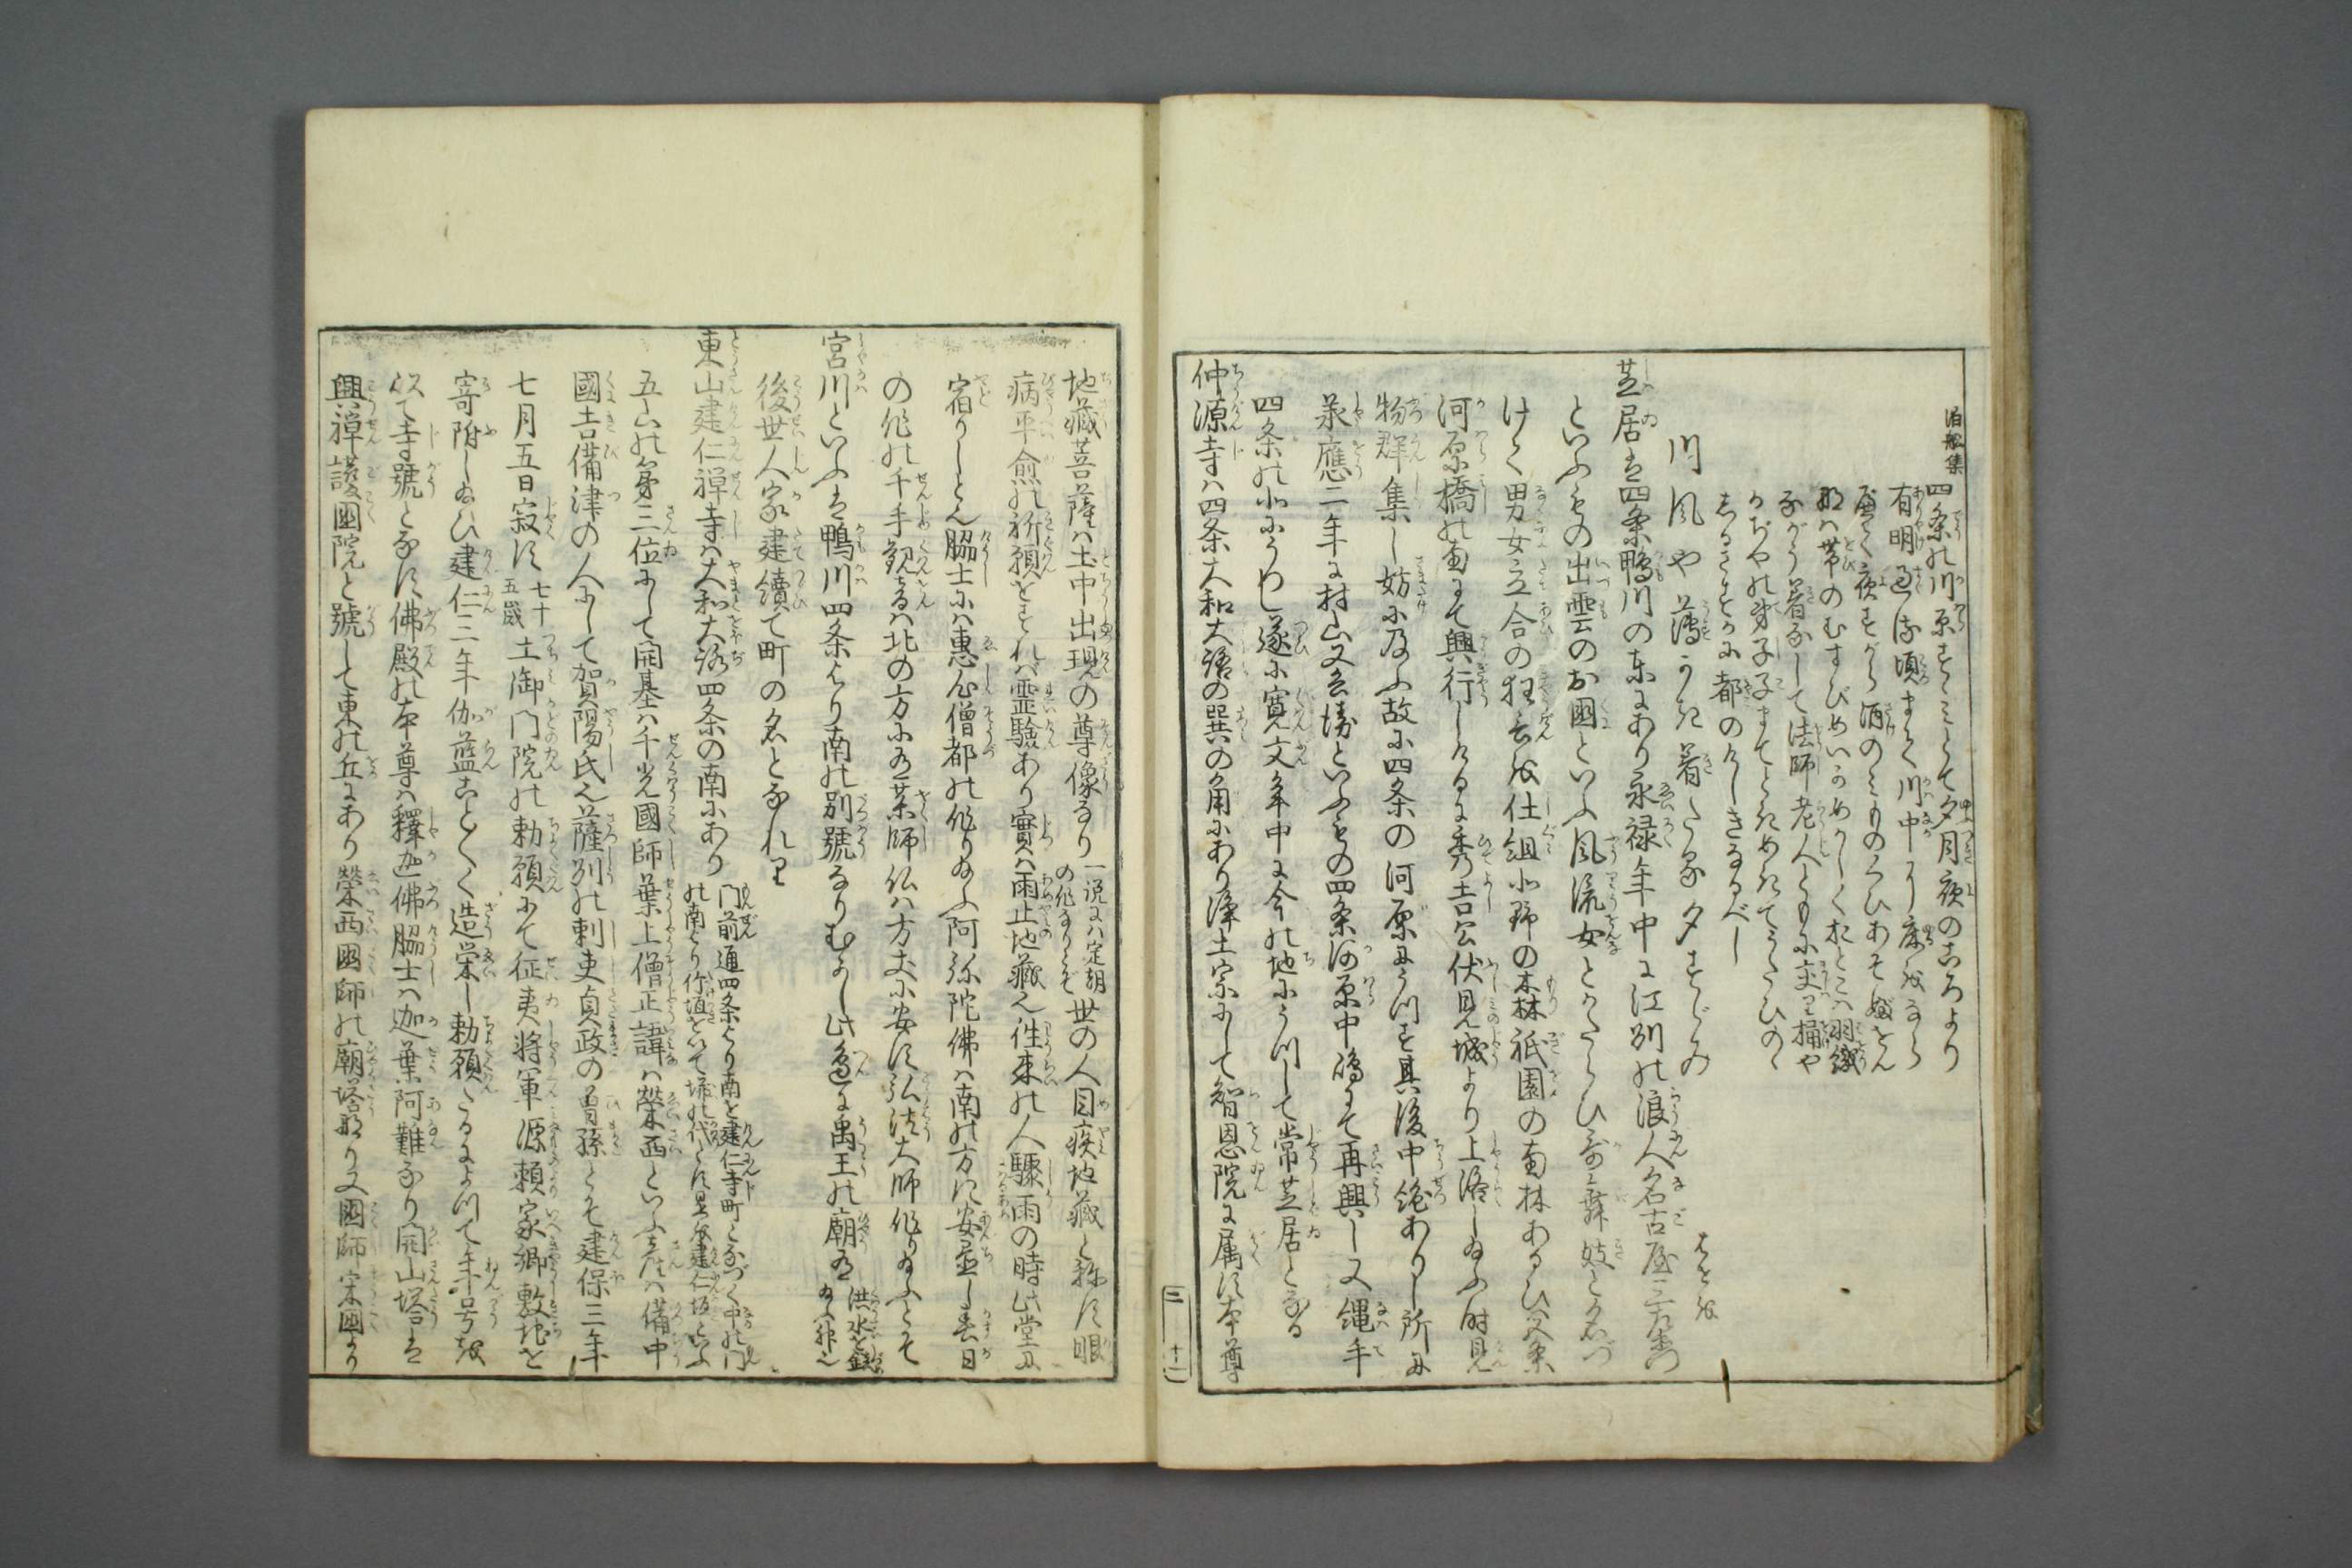 泊船集
四条の川原すゞみとて夕月夜のころより
有明過る頃まで川中に床をならべ
て夜すがら酒のみものくひあそぶをん
なは帯のむすびめいかめしくおとこは羽織
ながう着なして法師老人ともに交り桶や
かぢやの弟子子までとまめきてうたひのゝ
しるさすがに都のけしきなるべし
川風や薄がき着たる夕すゞみ
はせを
芝居は四条鴨川の東にあり永禄年中に江州の浪人名古屋三左衛門
といふもの出雲のお国といふ風流女とかたらひ歌舞妓と名づ
けて男女立合の狂言を仕組北野の森祇園の南林あるひは五条
河原橋の南にて興行しけるに秀吉公伏見城より上洛し給ふ時見
物群集し妨に及ぶ故に四条の河原にうつす其後中絶ありし所に
承應二年に村山又兵衛といふもの四条河原中嶋にて再興し又縄手
四条の北にうつし遂に寛文年中に今の地にうつして常芝居となる
仲源寺は四条大和大路の巽の角にあり浄土宗にして智恩院に属す本尊
三 十一
地藏菩薩は土中出現の尊像なり
一説には定朝
の作なりとぞ
世の人目疾地藏と称ず眼
病平愈の祈願をすれば靈驗あり實は雨止地藏也往来の人驟雨の時此堂に
宿りしとぞ脇士には惠心僧都の作り給ふ阿弥陀佛は南の方に安置し春日
の作の千手觀音は北の方にあり薬師仏は方丈に安ず弘法大師作り給ふとぞ
宮川といふは鴨川四条より南の別號なりむかし此邊に禹王の廟あり
洪水を鎮
給ふ神也
後世人家建續て町の名となれり
東山建仁禅寺は大和大路四条の南にあり
門前通四条より南を建仁寺町となづく中の門
の南より竹垣をゆいて塀の代とす是を建仁寺垣といふ
五山の第三位にして開基は千光國師葉上僧正諱は榮西といふ産は備中
國吉備津の人にして賀陽氏也薩州の刺史貞政の曽孫とぞ建保三年
七月五日寂す
七十
五歳
土御門院の勅願にて征夷将軍源頼家卿敷地を
寄附し給ひ建仁三年伽藍ことごとく造栄し勅願たるによつて年号を
以て寺號となす佛殿の本尊は釋迦佛脇士は迦葉阿難なり開山塔は
興禅護國院と號して東の丘にあり榮西國師の廟塔なり又國師宋國より